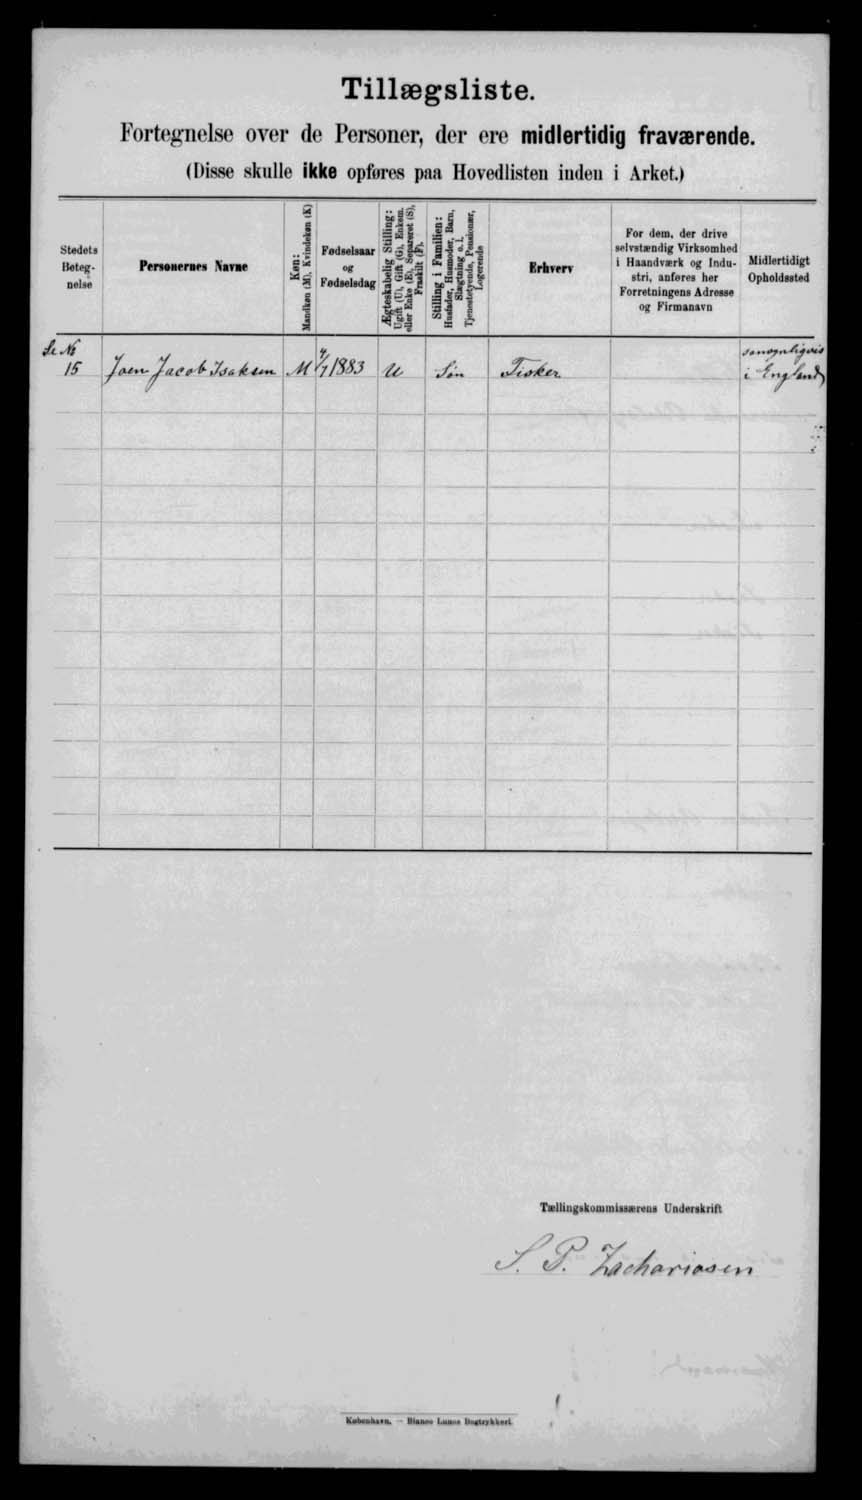 Tillægsliste.
Fortegnelse over de Personer, der ere midlertidig fraværende.
(Disse skulle ikke opføres paa Hovedlisten inden i Arket.)
Stedets
Beteg-
nelse
Personernes Navne
Køn:
Mandkøn (M), Kvindekøn (K)
Fødselsaar
og
Fødselsdag
Ægteskabelig Stilling:
Ugift (U), Gift (G), Enkem.
eller Enke (E), Separeret (S),
Fraskilt (F).
Stilling i Familien:
Husfader, Husmoder, Barn,
Slægtning o. l.,
Tjenestetyende, Pensionær,
Logerende
Erhverv
For dem, der drive
selvstændig Virksomhed
i Haandværk og Indu-
stri, anføres her
Forretningens Adresse
og Firmanavn
Midlertidigt
Opholdssted
No
15
Joen Jacob Isaksen
M
4/7 1883
U
Søn
Fisker
i England
Tællingskommissærens Underskrift
S. P. Zachariasen
København. — Bianco Lunos Bogtrykkeri.